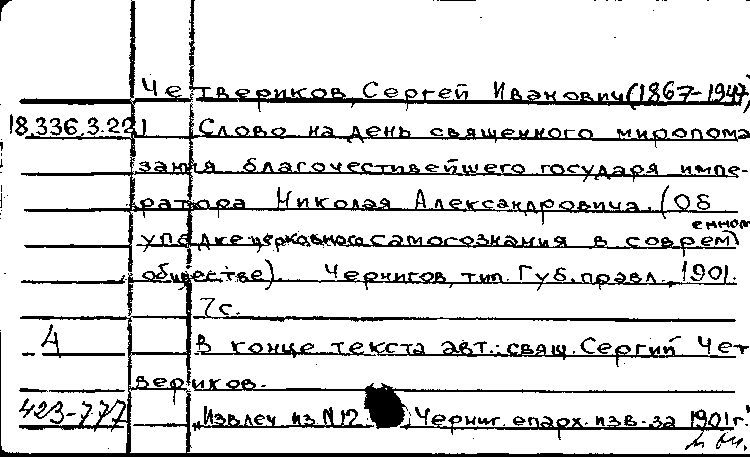 Четвериков, Сергей Иванович (1867-1947)
18.336.3.221 Слово на день священного миропома
зания благочестивейшего государя импе-
ратора Николая Александровича. (Об
упадке церковного самосознания в современном
обществе). Чернигов, тип. Губ. правл., 1901.
7 с.
4 В конце текста авт.: свящ. Сергий Чет
вериков.
423-777 „Извлеч из N12 Черниг. епарх. изв. за 1901 г."